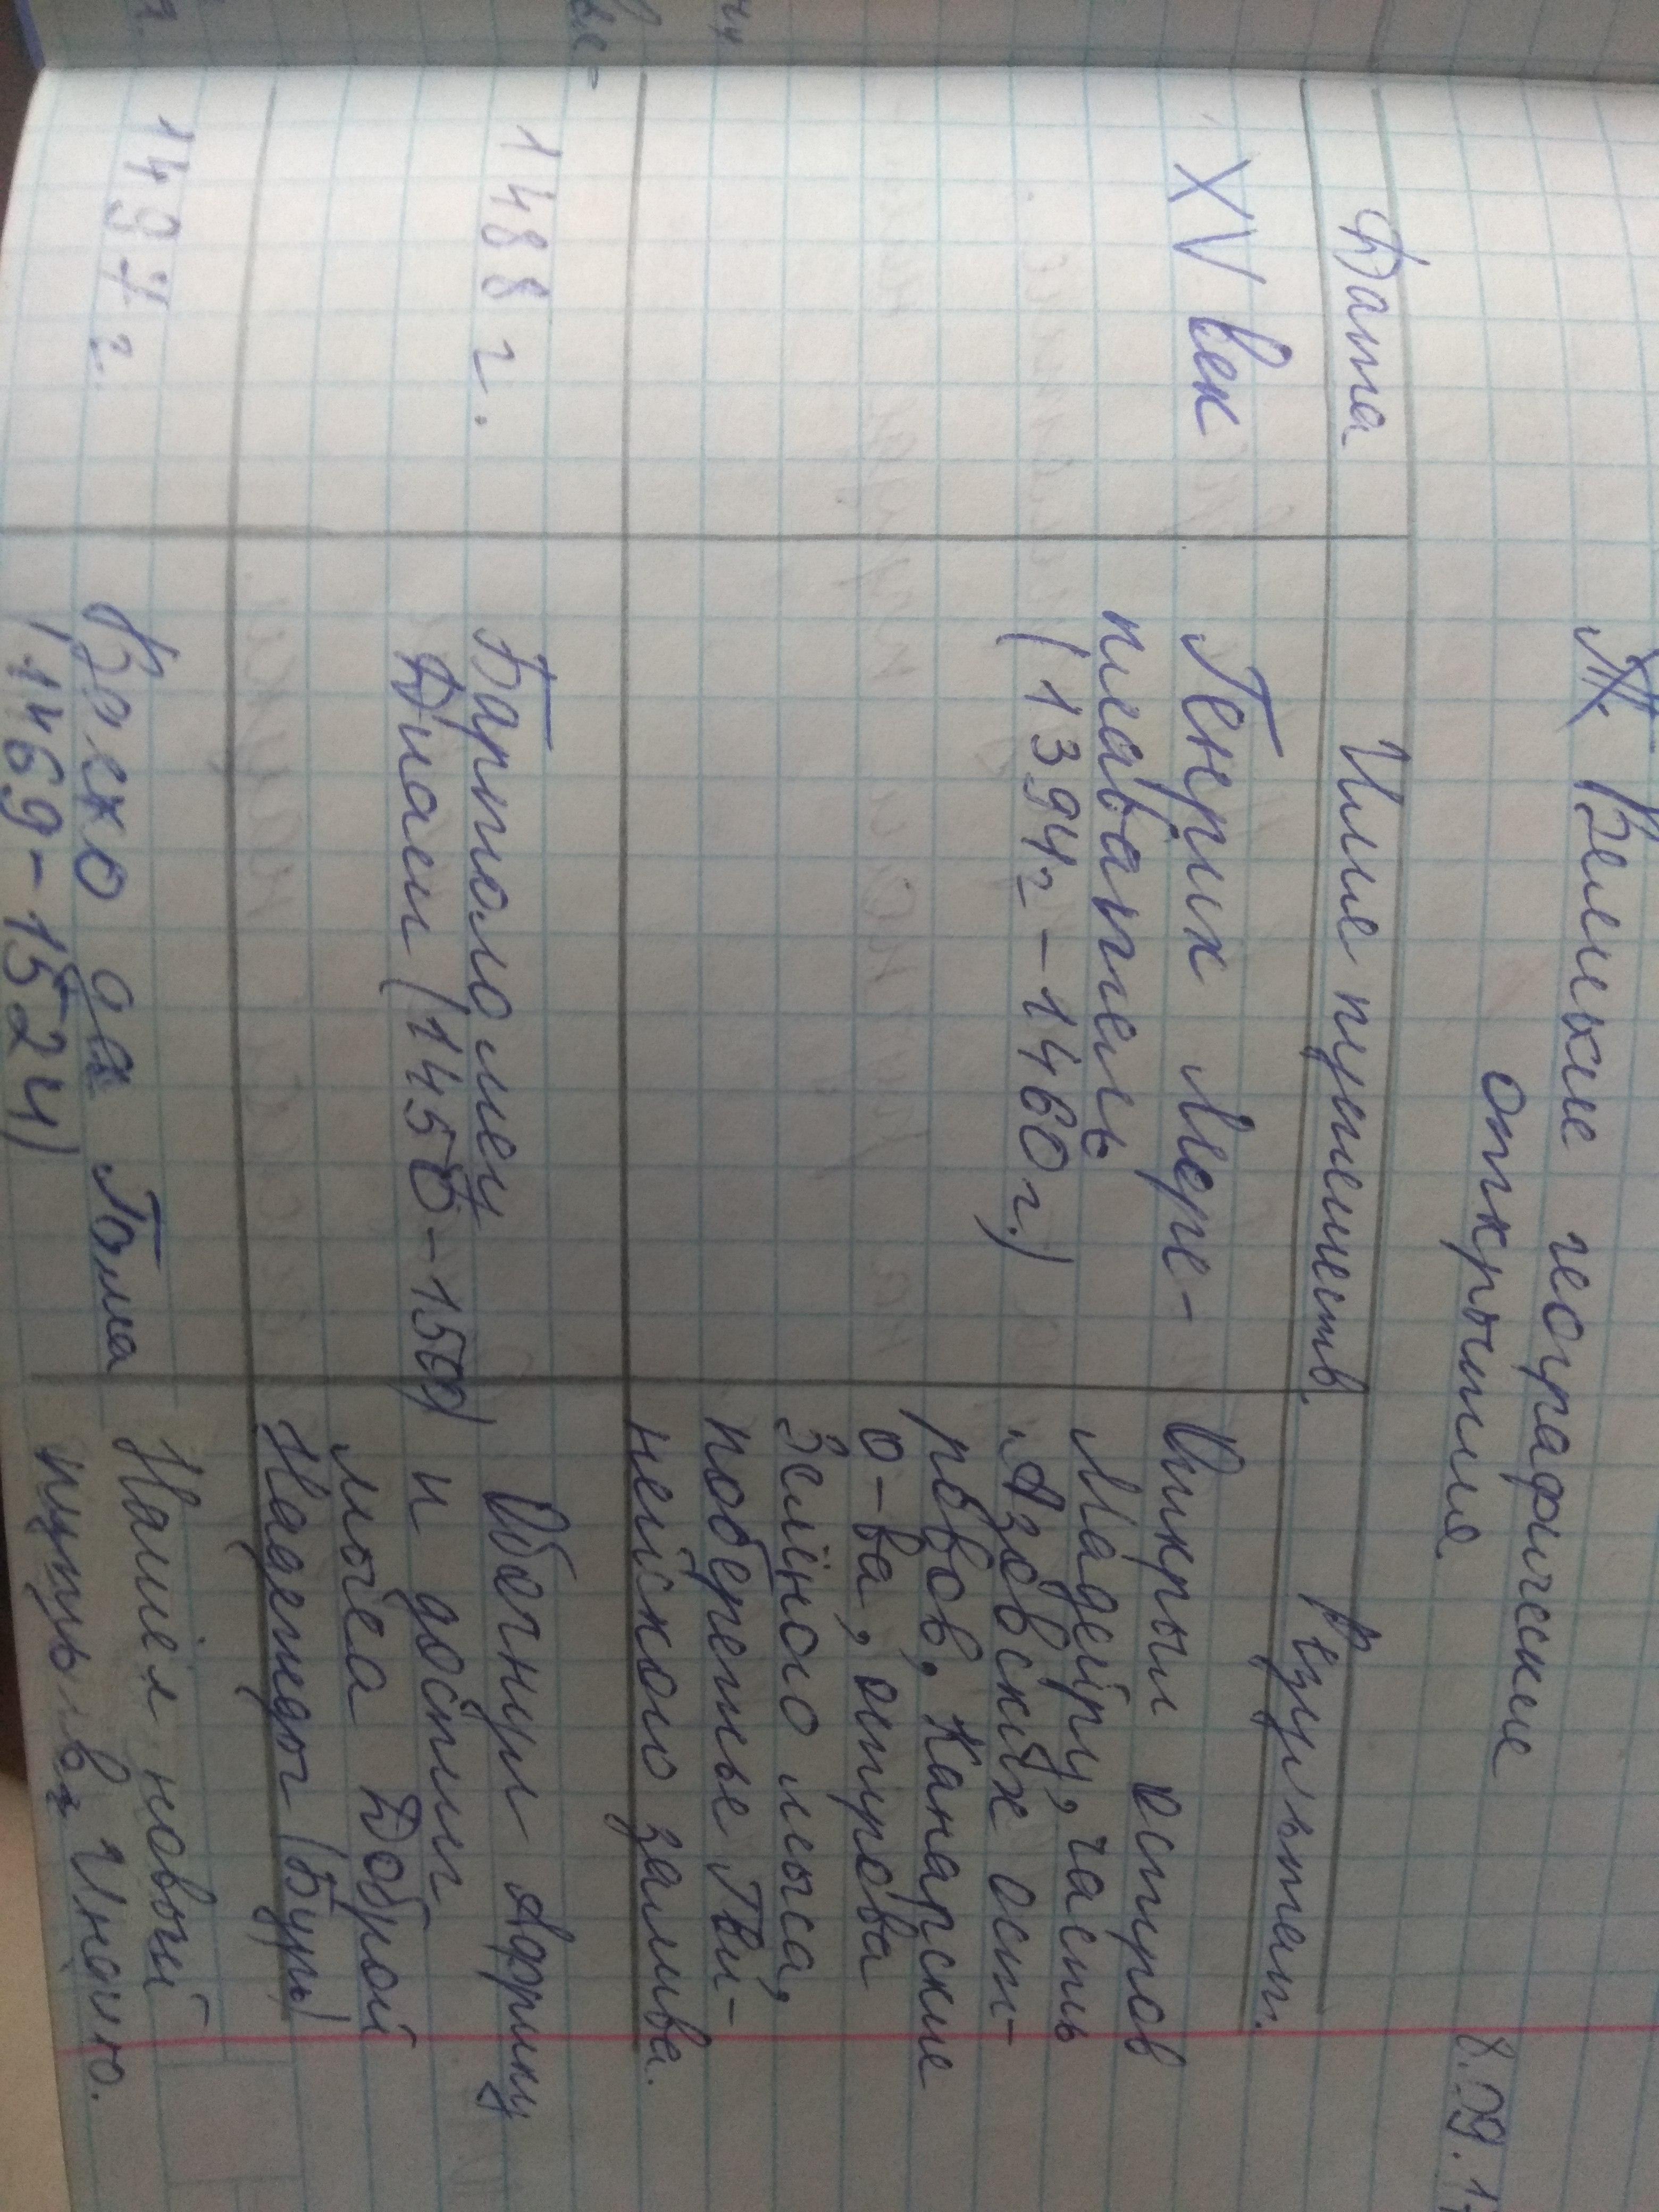 8.09.1
Великие географические
открытия.
Дата Имя путешеств. Результат.
XV век Генрих Море-
плаватель
(1394г – 1460г.)
Открыл остров
Мадейру, часть
Азовских ост-
ровов, Канарские
о-ва, открова
Зелёного мыса,
побережье Гви-
нейского залива.
1488 г. Бартоломеу
Диаш (1450–1500)
Обогнул Африку
и достиг
мыса Доброй
Надежды (Бурь)
1497 г. Васко да Гама
(1469–1524)
Нашел новый
путь в Индию.